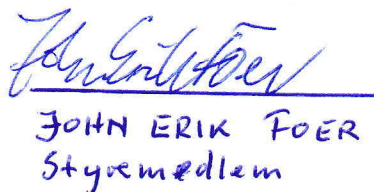 John Erik Foer
JOHN ERIK FOER
Styremedlem